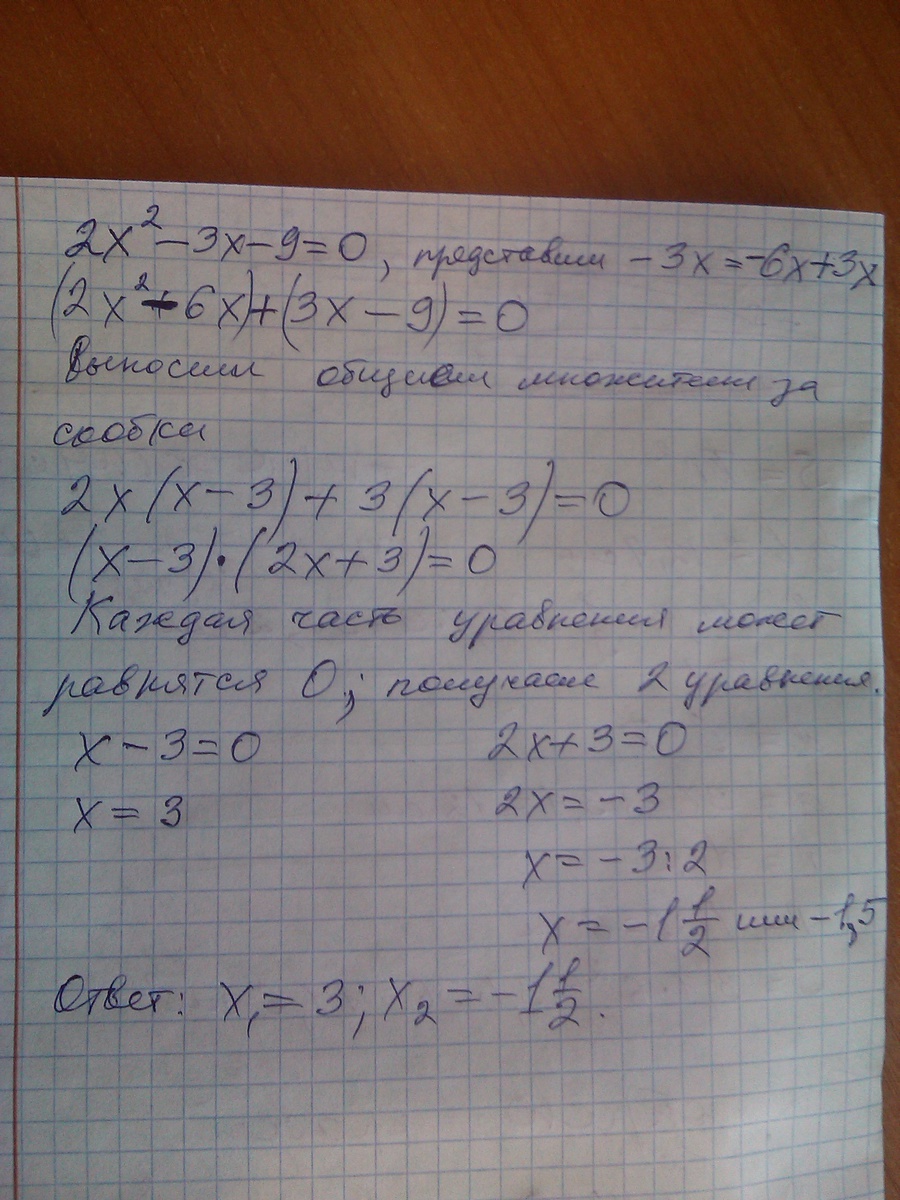 2x² - 3x - 9 = 0, представим -3x = -6x + 3x
(2x² - 6x) + (3x - 9) = 0
Выносим общием множители за
скобки
2x(x - 3) + 3(x - 3) = 0
(x - 3) · (2x + 3) = 0
Каждая часть уравнения может
равнятся 0; получаем 2 уравнения.
x - 3 = 0 2x + 3 = 0
x = 3 2x = -3
x = -3 : 2
x = -1 1/2 или -1,5
Ответ: x₁ = 3; x₂ = -1 1/2.